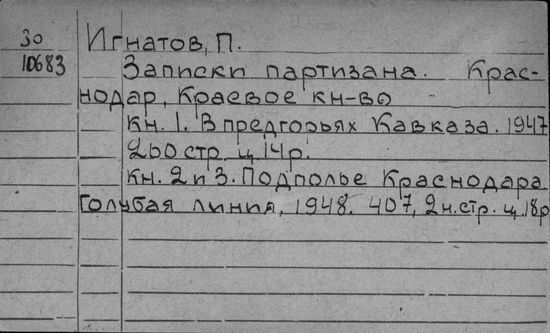 30
10683
Игнатов, П.
Записки партизана. Крас-
нодар, Краевое кн-во
Кн. 1. В предгорьях Кавказа. 1947
260 стр. ц. 14 р.
Кн. 2 и 3. Подполье Краснодара
Голубая линия, 1948. 407, 2 н. стр. ц. 18 р